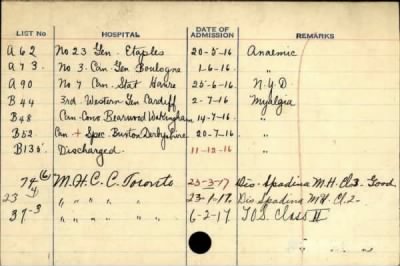 LIST NO HOSPITAL DATE OF ADMISSION REMARKS
A 62 No 23 Gen. Etaples 20-5-16 Anaemic
A 73. No 3. Can. Gen Boulogne 1-6-16 "
A 90 No 7 Can. Stat Havre 25-6-16 N.Y.D.
B 44 3rd Western Gen Cardiff 2-7-16 Myalgia
B48 Can. Conv Bearwood Wokingham 14-7-16 "
B52. Can + Spec. Buxton Derbyshire 20-7-16 "
B135 Discharged. 11-12-16 "
74 (6) M.H.C.C. Toronto 23-3-17 Dis. Spadina M.H. Cl 3. Good
23 " " " " 23-1-17. Dis Spadina M.H. Cl.2-
37-3 " " " " 6-2-17 T.O.S. Class II